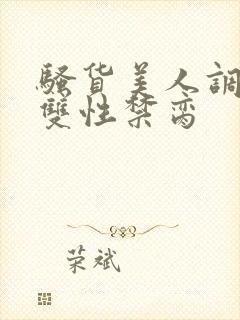 騷貨美人調
雙性禁臠
荣斌